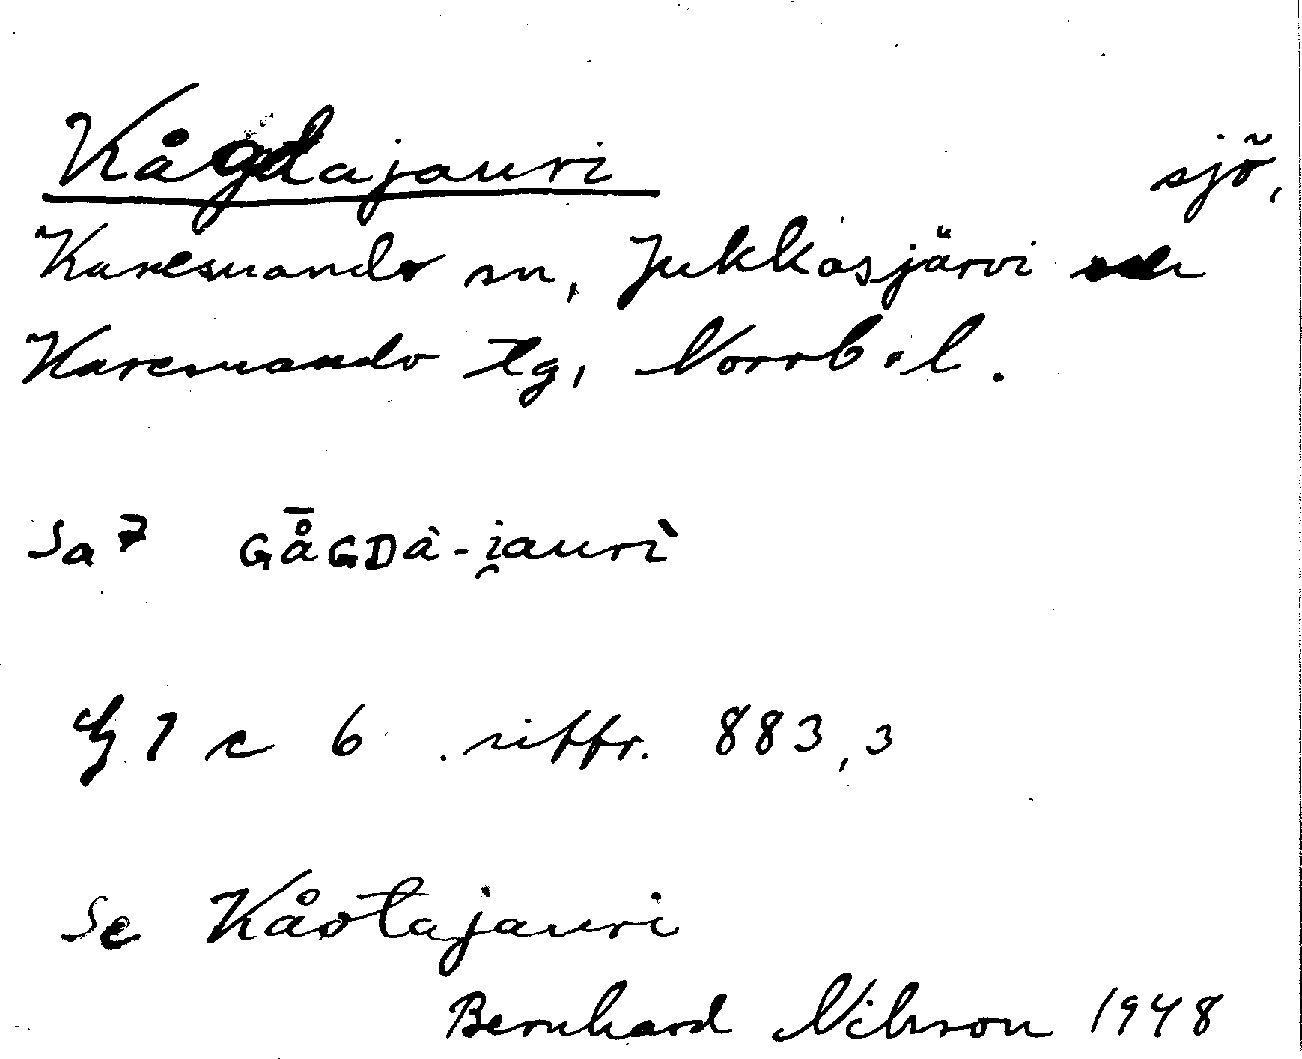 Kågdajauri sjö,
Karesuando sn, Jukkasjärvi och
Karesuando tlg, Norrb. l.
Sa 7 GǡGDà-i̯aurì
1 c 6 siffr. 883,3
Se Kåotajauri
Bernhard Nilsson 1948